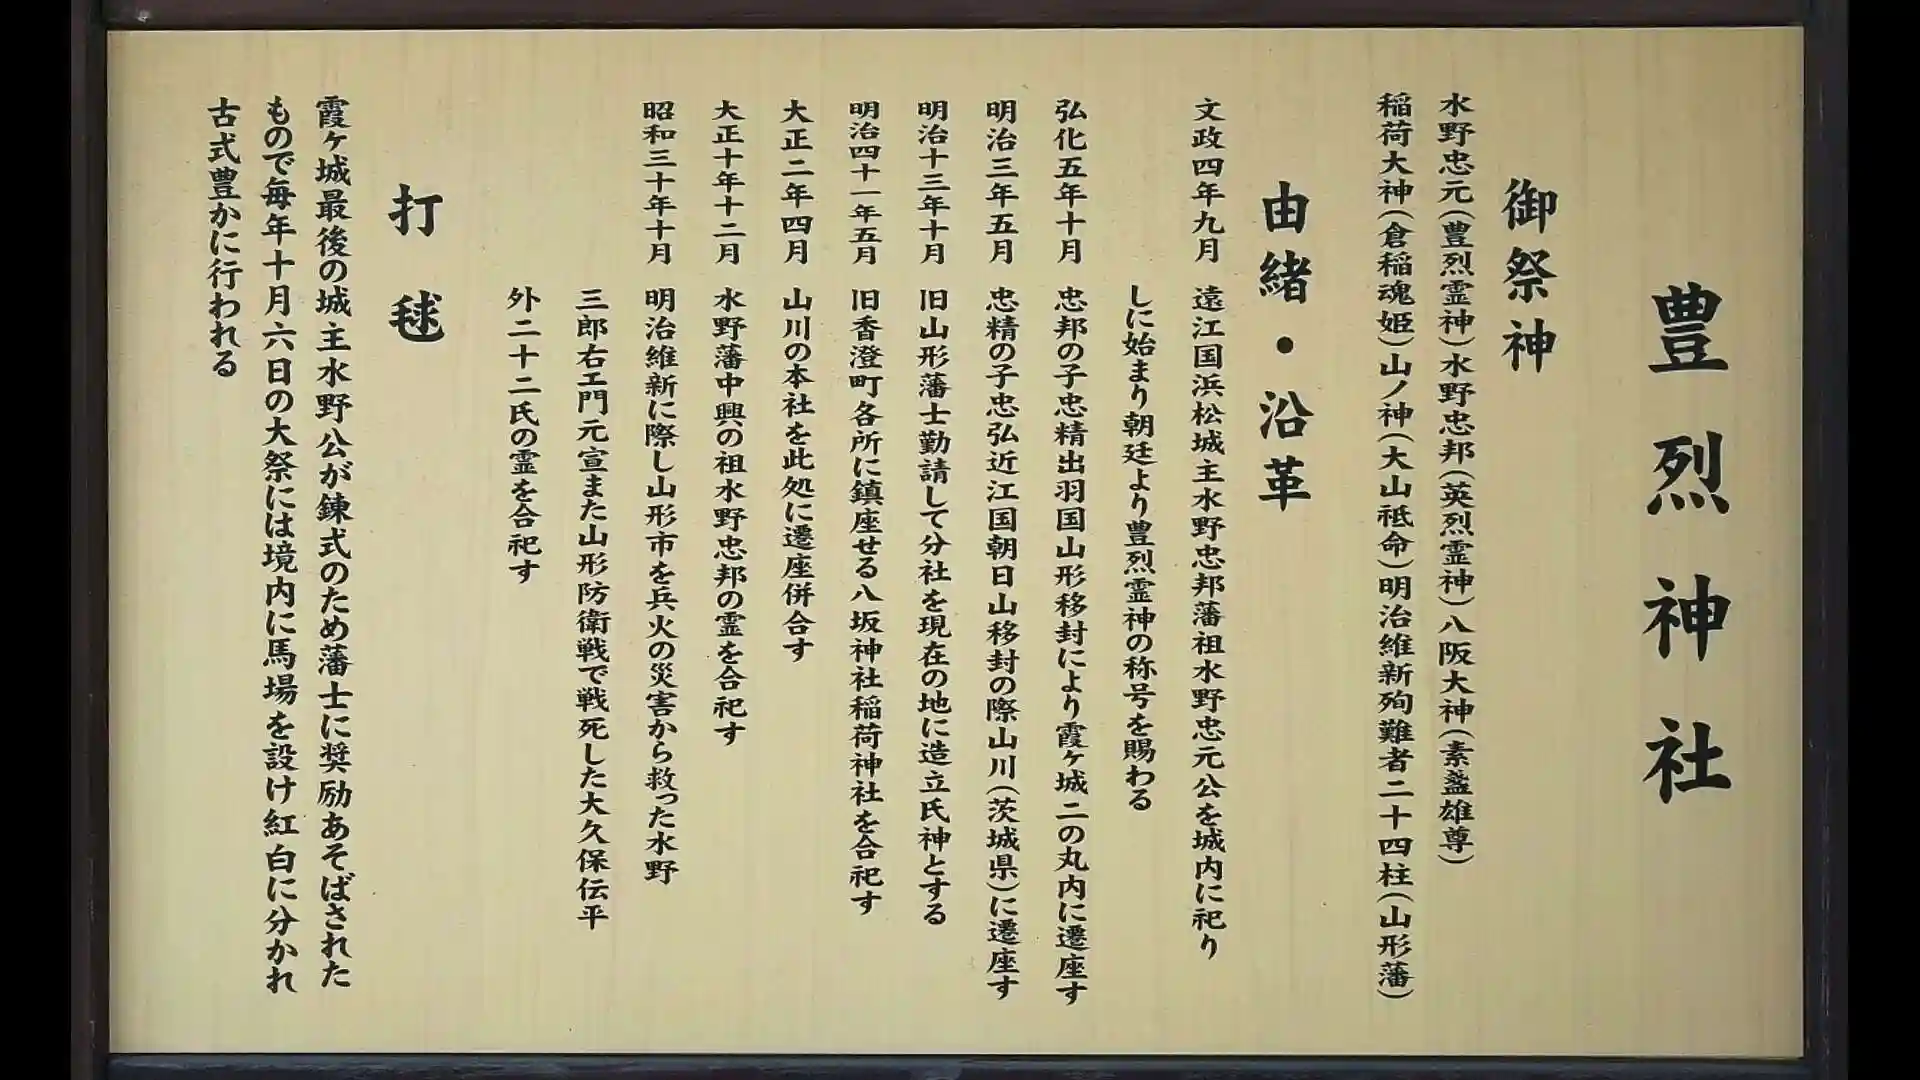 豊烈神社
御祭神
水野忠元(豊烈霊神)水野忠邦(英烈霊神)八阪大神(素盞雄尊)
稲荷大神(倉稲魂姫)山ノ神(大山祇命)明治維新殉難者二十四柱(山形藩)
由緒・沿革
文政四年九月 遠江国浜松城主水野忠邦藩祖水野忠元公を城内に祀り
しに始まり朝廷より豊烈霊神の称号を賜わる
弘化五年十月 忠邦の子忠精出羽国山形移封により霞ヶ城二の丸内に遷座す
明治三年五月 忠精の子忠弘近江国朝日山移封の際山川(茨城県)に遷座す
明治十三年十月 旧山形藩士勤請して分社を現在の地に造立氏神とする
明治四十一年五月 旧香澄町各所に鎮座せる八坂神社稲荷神社を合祀す
大正二年四月 山川の本社を此処に遷座併合す
大正十年十二月 水野藩中興の祖水野忠邦の霊を合祀す
昭和三十年十月 明治維新に際し山形市を兵火の災害から救った水野
三郎右エ門元宣また山形防衛戦で戦死した大久保伝平
外二十二氏の霊を合祀す
打毬
霞ヶ城最後の城主水野公が錬式のため藩士に奨励あそばされた
もので毎年十月六日の大祭には境内に馬場を設け紅白に分かれ
古式豊かに行われる